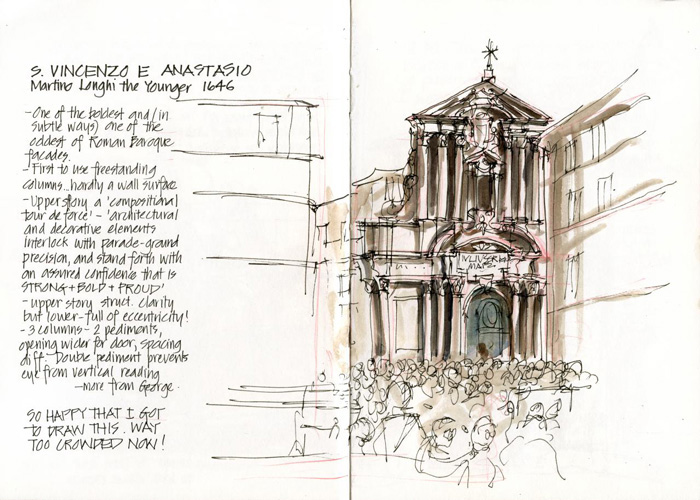 S. VINCENZO E ANASTASIO
Martino Longhi the Younger 1646
-One of the boldest and (in
subtle ways) one of the
oddest of Roman Baroque
facades.
-First to use freestanding
columns...hardly a wall surface
-Upper story a 'compositional
tour de force' - 'architectural
and decorative elements
interlock with parade-ground
precision, and stand forth with
an assured confidence that is
STRONG + BOLD + PROUD'
-upper story struct. clarity
but lower-full of eccentricity!
-3 columns- 2 pediments,
opening wider for door, spacing
diff. Double pediment prevents
eye from vertical reading
-more from George.
SO HAPPY THAT I GOT
TO DRAW THIS. WAY
TOO CROWDED NOW!